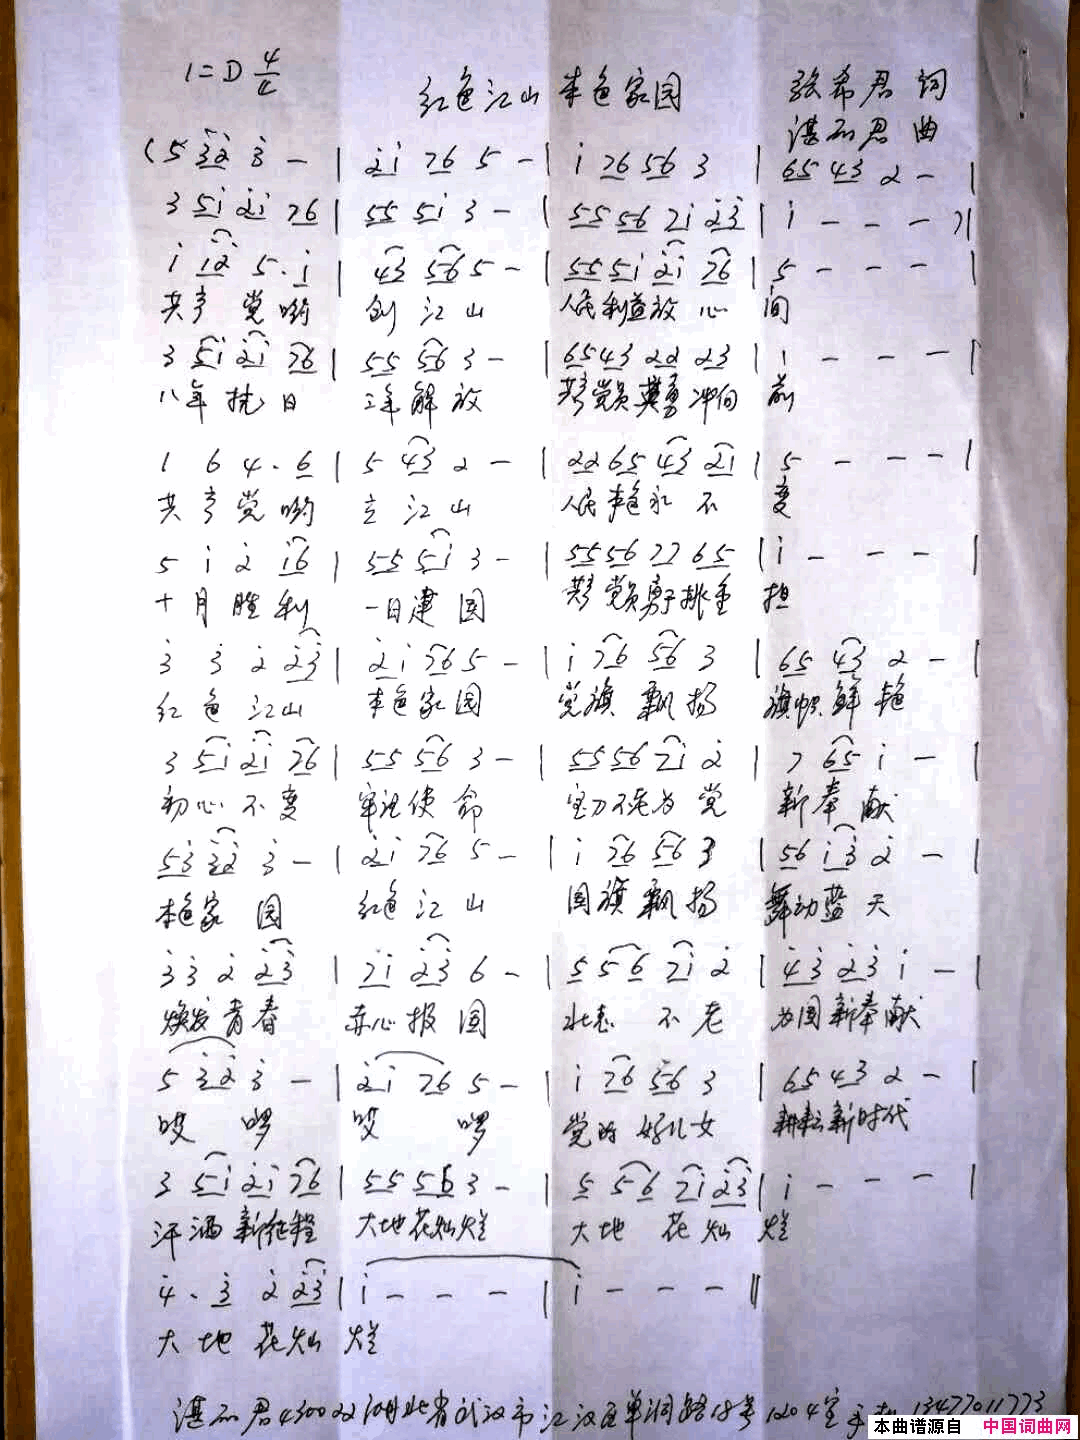 1=D 4/4
红色江山 本色家园
张希君 词
湛石君 曲
(5 3̇2̇ 3̇ - | 2̇1̇ 76 5 - | 1̇ 76 56 3 | 65 43 2 - |
3 51̇ 2̇1̇ 76 | 55 51̇ 3 - | 55 56 71̇ 2̇3̇ | 1̇ - - - )|
1̇ 1̇2̇ 5. 1̇ | 43 56 5 - | 55 51̇ 2̇1̇ 76 | 5 - - - |
共产 党哟 创 江 山 人民利益放 心 间
3 51̇ 2̇1̇ 76 | 55 56 3 - | 65 43 22 23 | 1 - - - |
八年 抗 日 三年 解 放 共产党员英勇冲向 前
1 6 4. 6 | 5 43 2 - | 22 65 43 21 | 5 - - - |
共 产 党 哟 立 江 山 人民本色永 不 变
5 1̇ 2̇ 1̇6 | 55 51̇ 3 - | 55 56 77 65 | 1̇ - - - |
十 月 胜 利 一日建 国 共产党员勇于挑重 担
3̇ 3̇ 2̇ 2̇3̇ | 2̇1̇ 76 5 - | 1̇ 76 56 3 | 65 43 2 - |
红 色 江山 本色家园 党旗 飘 扬 旗帜 鲜 艳
3 51̇ 2̇1̇ 76 | 55 56 3 - | 55 56 71̇ 2̇ | 7 65 1̇ - |
初心 不 变 牢记使 命 宝刀不老为 党 新奉 献
53̇ 3̇2̇ 3̇ - | 2̇1̇ 76 5 - | 1̇ 76 56 3 | 56 1̇3̇ 2̇ - |
本色家 园 红色 江 山 国旗 飘 扬 舞动蓝 天
3̇3̇ 2̇ 2̇3̇ | 71̇ 2̇3̇ 6 - | 5 56 71̇ 2̇ | 4̇3̇ 2̇3̇ 1̇ - |
焕发 青 春 赤心报 国 壮志 不 老 为国新奉献
5 3̇2̇ 3̇ - | 2̇1̇ 76 5 - | 1̇ 76 56 3 | 65 43 2 - |
哎 啰 哎 啰 党的 好儿女 耕耘新时代
3 51̇ 2̇1̇ 76 | 55 56 3 - | 5 56 71̇ 2̇3̇ | 1̇ - - - |
汗洒 新征程 大地花灿烂 大 地 花 灿 烂
4̇. 3̇ 2̇ 2̇3̇ | 1̇ - - - | 1̇ - - - ‖
大 地 花灿 烂
湛石君430022湖北省武汉市江汉区单洞路18号1204室手机13477011773
本曲谱源自 中国词曲网